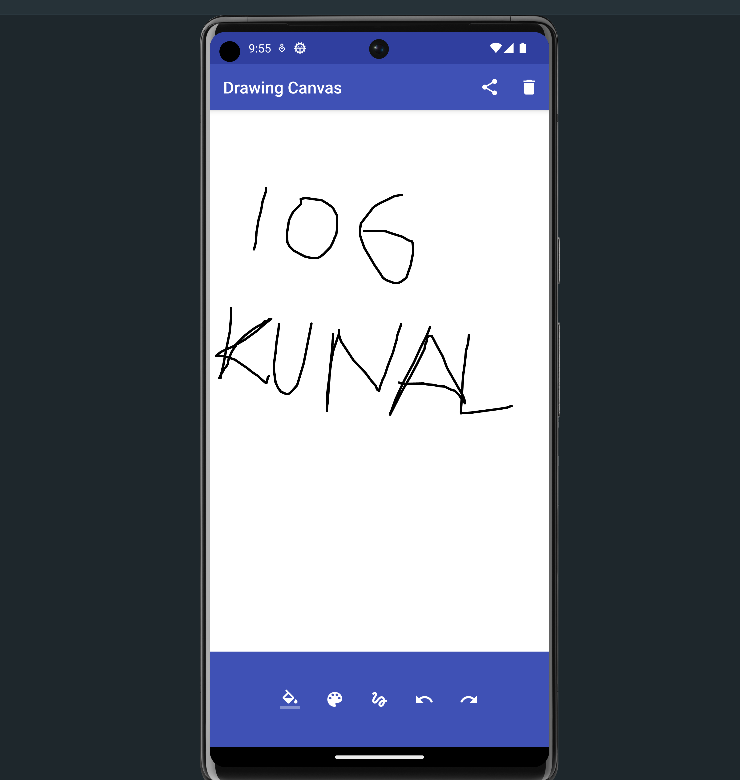 9:55
Drawing Canvas
106
KUNAL